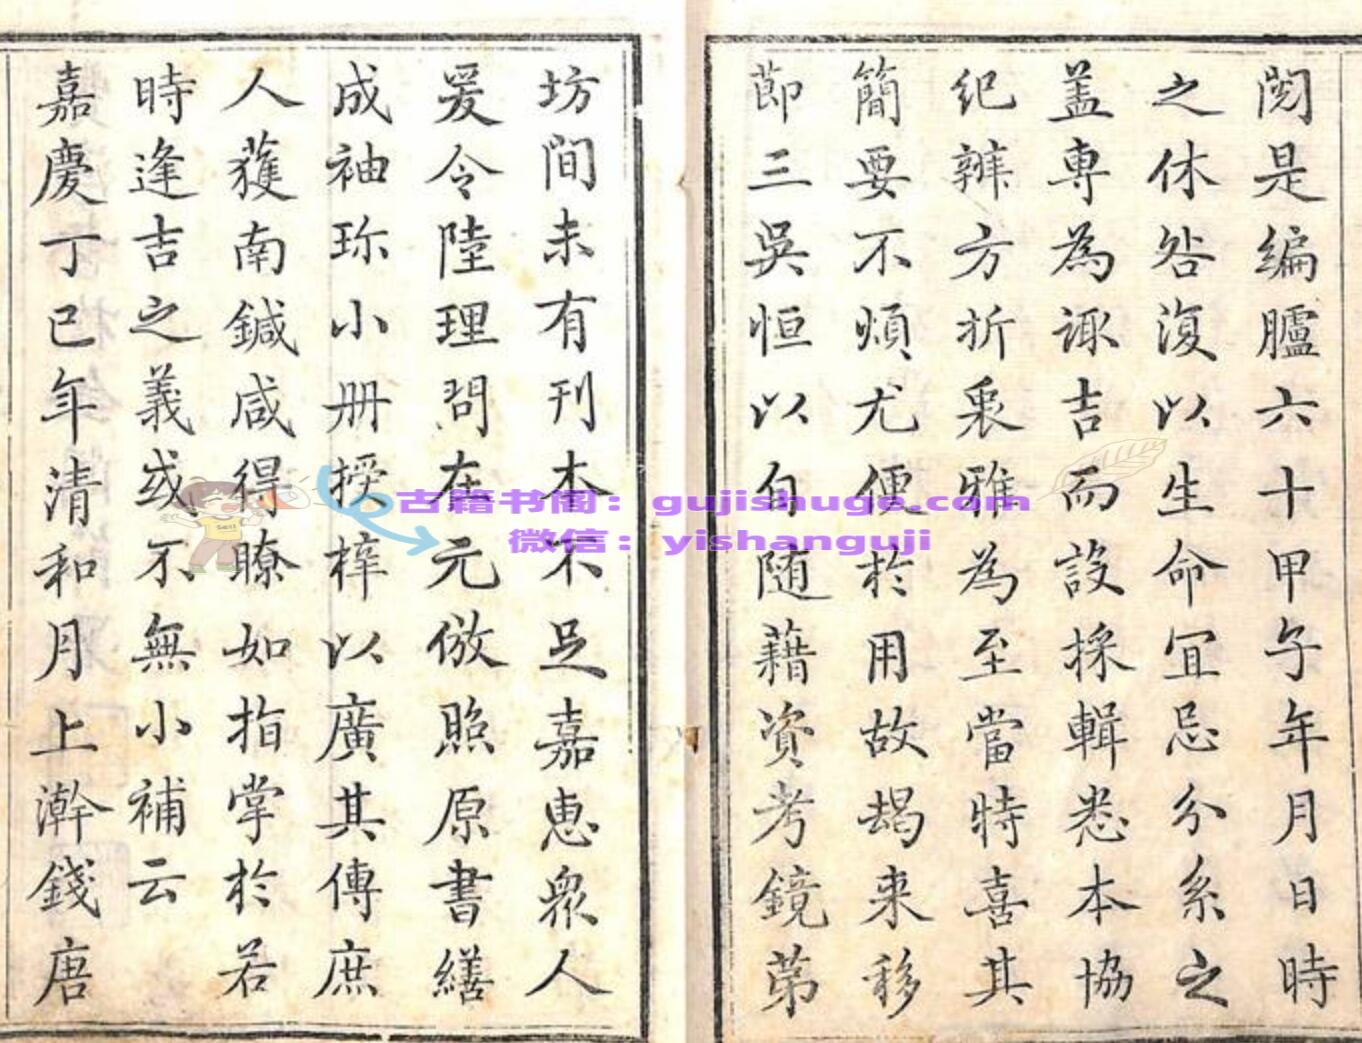 閱是編臚六十甲子年月日時
之休咎復以生命宜忌分系之
盖專為諏吉而設採輯悉本協
纪辨方折衷雅為至當特喜其
簡要不煩尤便於用故朅来移
節三吳恒以自随藉資考鏡第
坊間未有刊本不足嘉惠衆人
爰令陸理問在元倣照原書繕
成袖珎小册授梓以廣其傳庶
人獲南鍼咸得瞭如指掌於若
時逢吉之義或不無小補云
嘉慶丁巳年清和月上澣錢唐
古籍书阁：gujishuge.com
微信：yishanguji